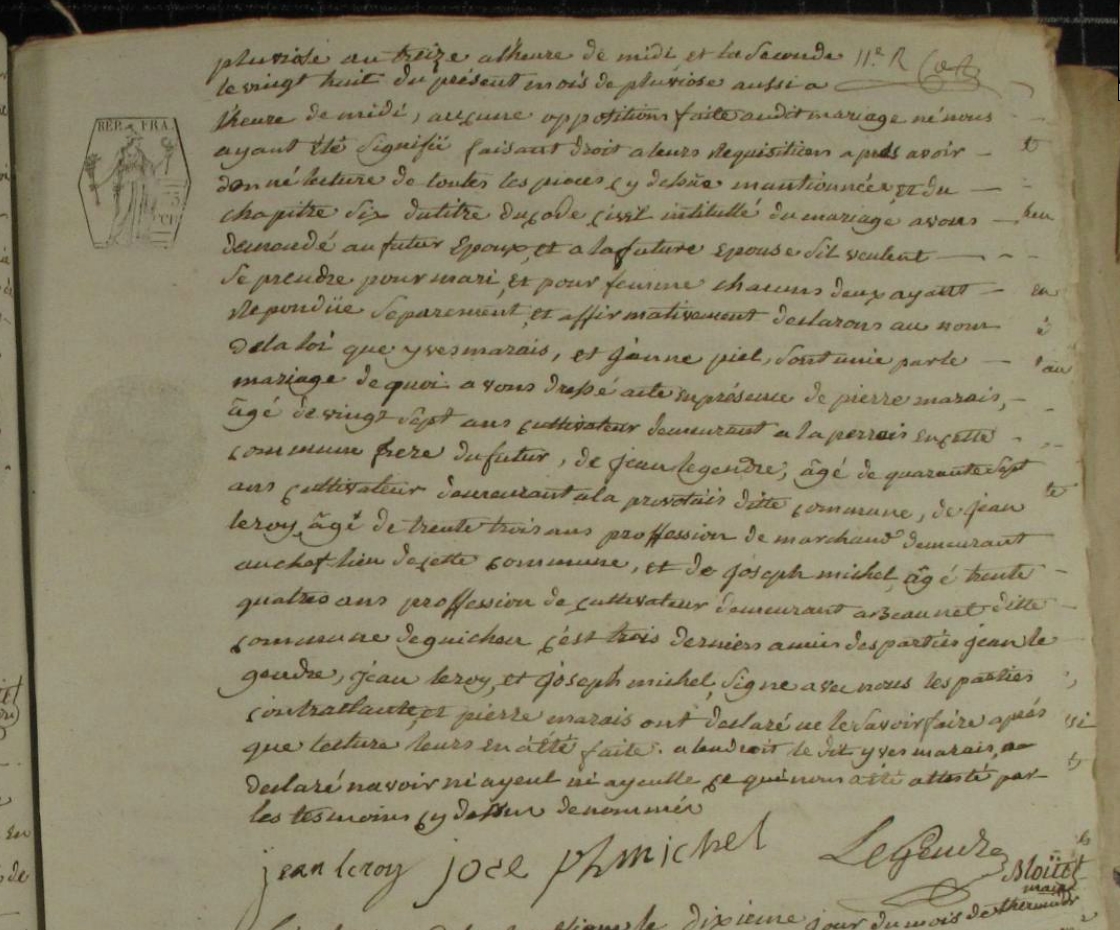 pluviose an treize a lheure de midi et la seconde 11.e R
le vingt huit du présent mois de pluviose aussi a
lheure de midi, aucune opposition faite audit mariage né nous
ayant été signifii faisant droit a leurs Requisitions apres avoir
donné lecture de toutes les pieces cy dessus mantionnées, et du
chapitre six du titre du code civil intitullé du mariage avons
demandé au futur Epoux, et a la future epouse sil veulent
se prendre pour mari, et pour femme chacuns deux ayant
Repondüe separement, et affirmativement declarons au nom
dela loi que yves marais, et jeanne piel, sont unie par le
mariage de quoi avons dressé acte en présence de pierre marais,
âgé de vingt sept ans cultivateur demeurant a la perrais en cette
commune frere du futur, de jean legendre, âgé de quarante sept
ans cultivateur demeurant a la provotais ditte commune, de jean
leroy, âgé de trente trois ans proffession de marchand demeurant
au chef lieu de cette commune, et de joseph michel, âgé trente
quatres ans proffession de cultivateur demeurant a Beaunet ditte
commune de guichen c'est trois derniers amies des parties jean le
gendre, jean leroy, et joseph michel, signe avec nous les parties
contractante, et pierre marais ont declaré ne le savoir faire aprés
que lecture leurs en a été faite. a lendroit le dit yves marais, a
declaré navoir ni ayeul ni ayeulle ce qui nous a été attesté par
les tesmoins cy dessur denommée
REP. FRA.
jean leroy joseph michel Legendre
Bloüet
maire
dixieme jour du mois de thermidor